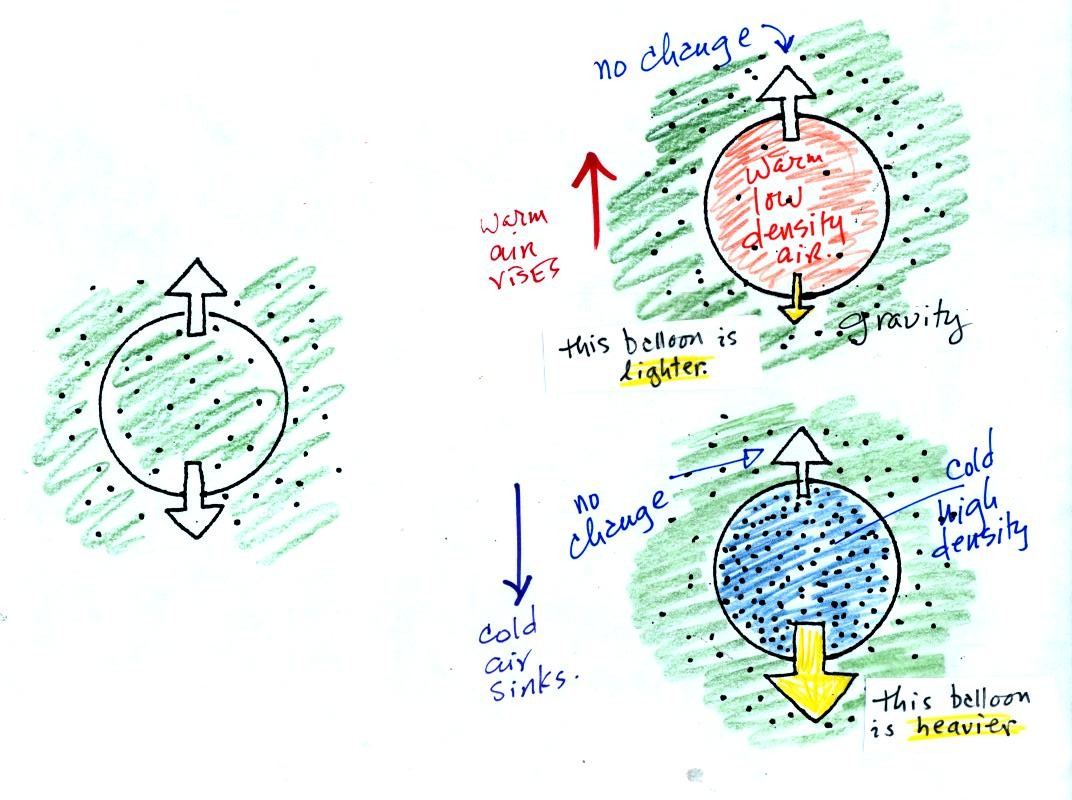 no change
warm
low
density
air.
warm
air
rises
gravity
this balloon is
lighter.
no
change
cold
high
density
cold
air
sinks.
this balloon
is heavier